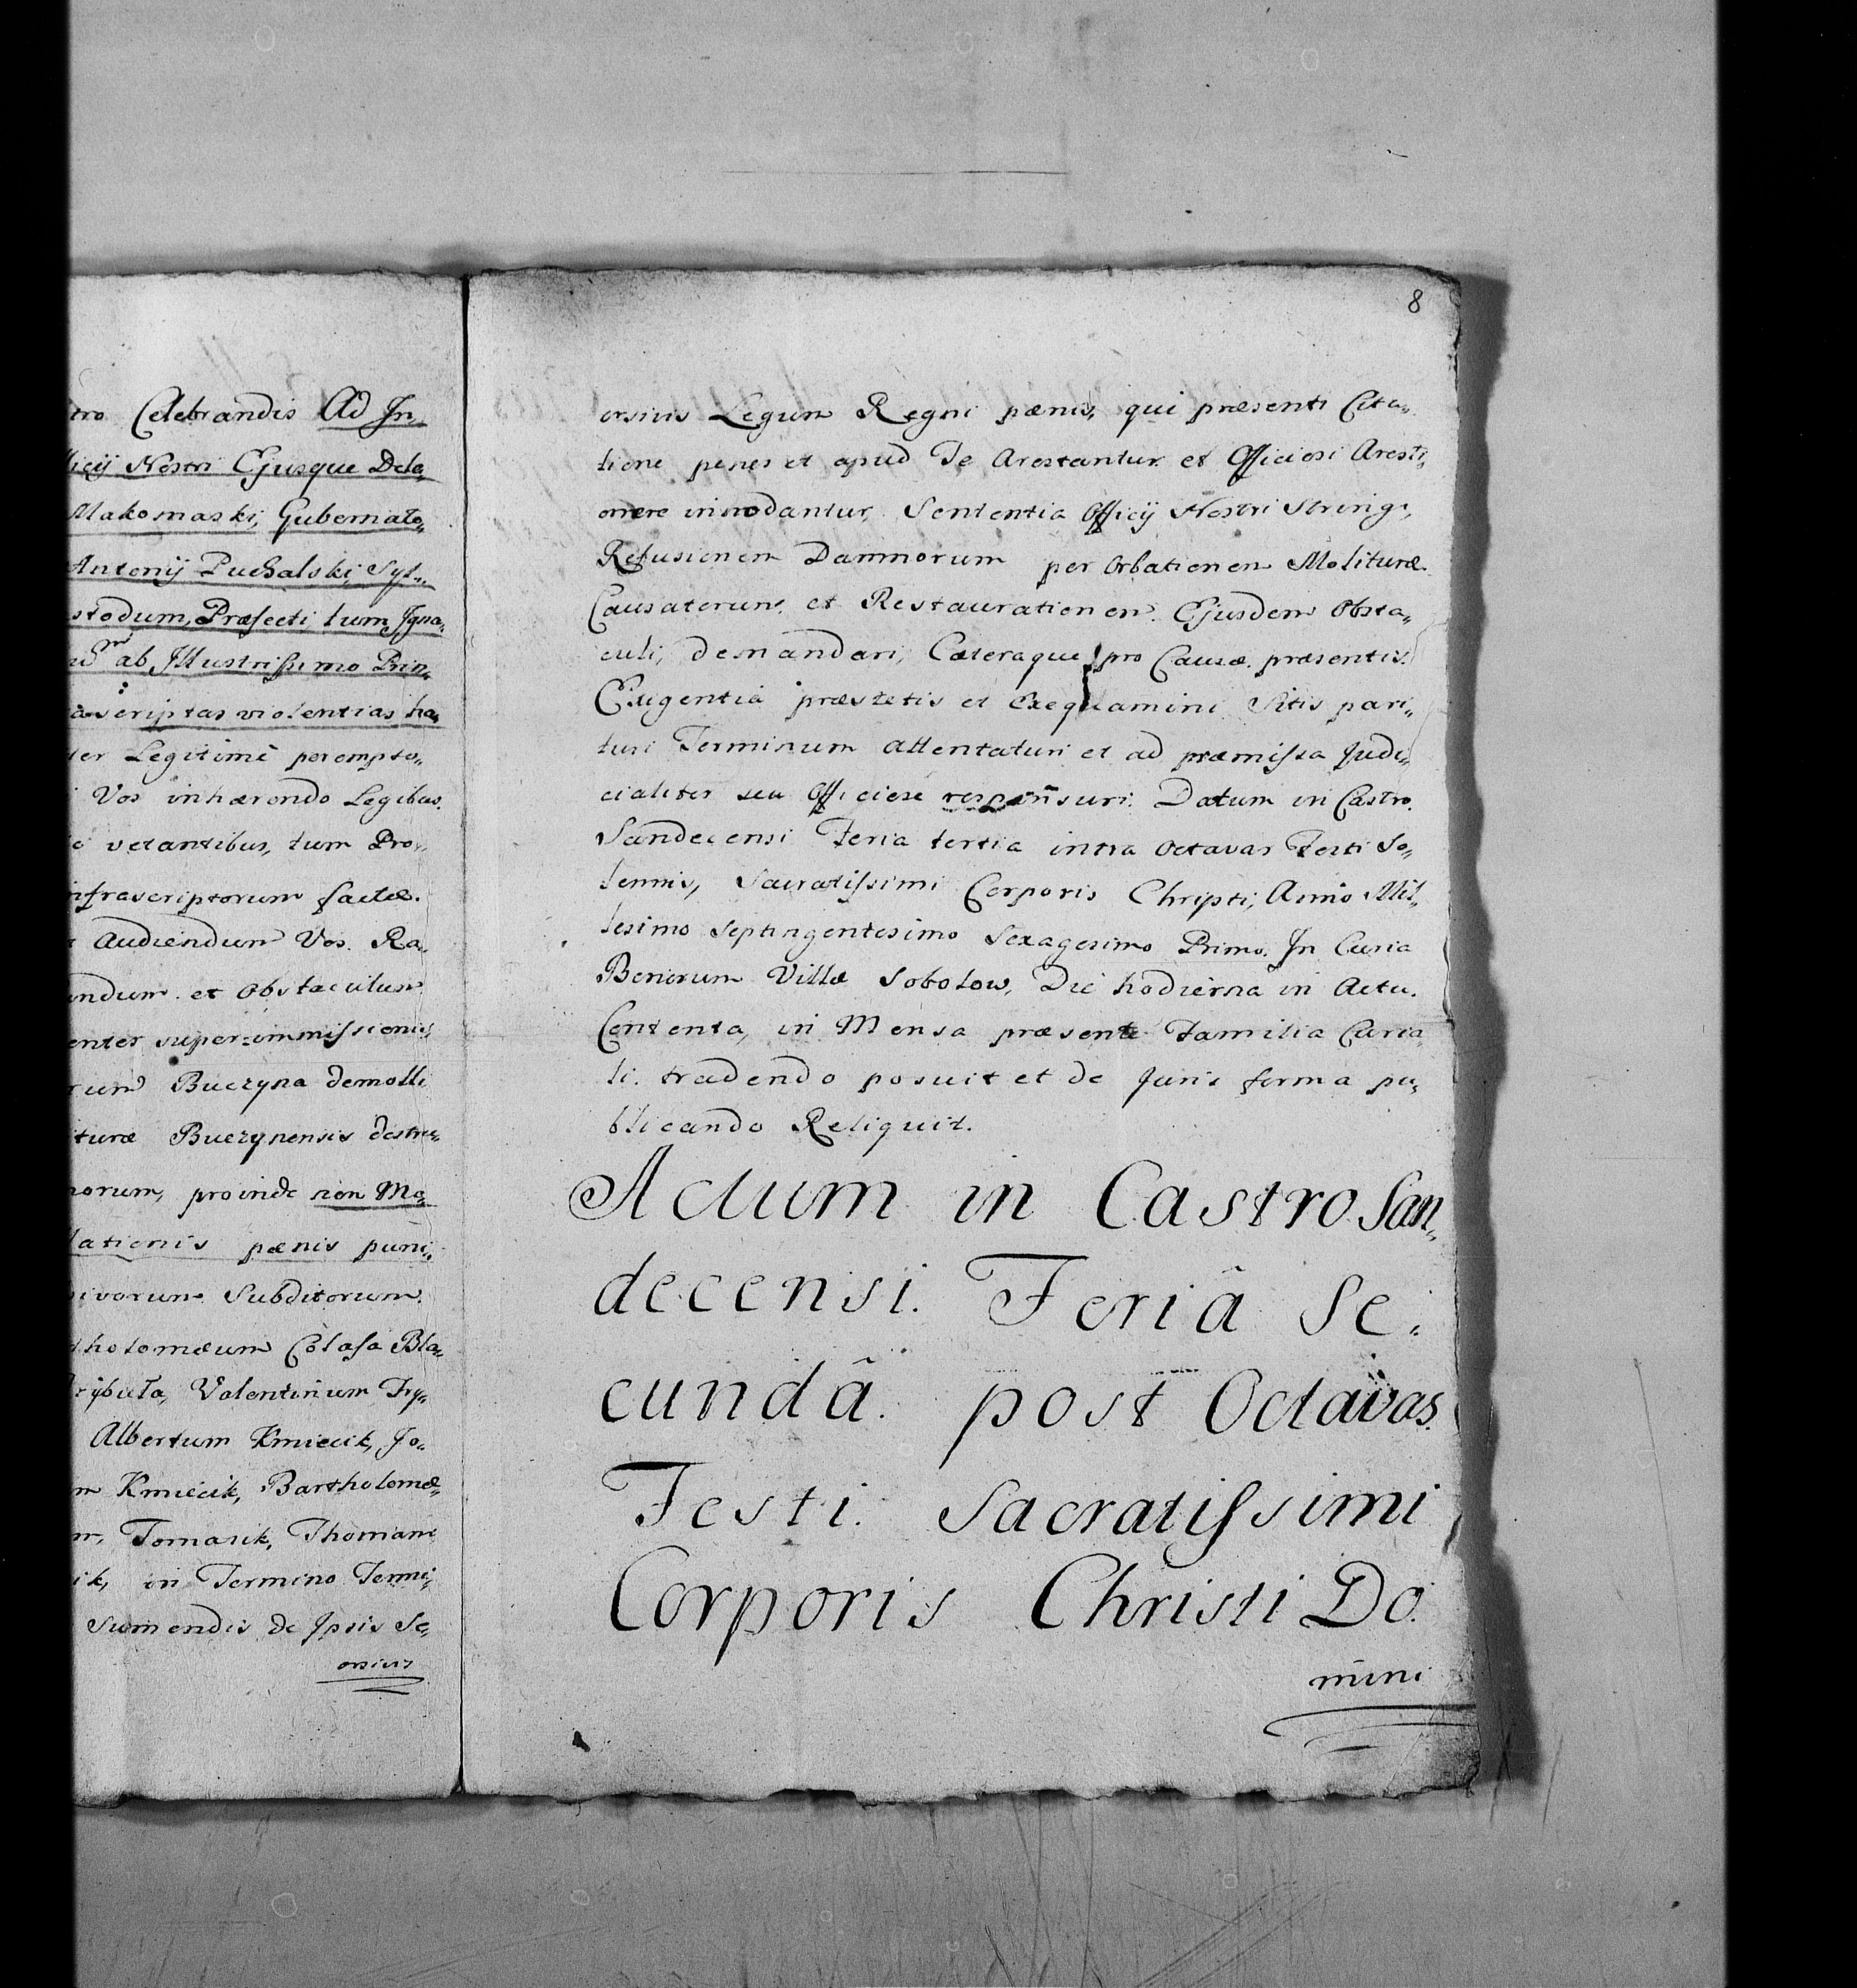 tro Celebrandis Ad In„
licij Nostri Ejusque Dele„
Makomaski, Gubernato„
Antonij Puchalski, Syl„
stodum, Præfecti, tum Igna„
ab Illustrissimo Prin„
scriptas violentias ha„
ter Legitimè perempto„
Vos inhærendo Legibus.
vetantibus, tum Pro„
nfrascriptorum factæ.
Audiendum Vos. Ra„
ndum et Obstaculum
enter super immissionis
rum Buczyna demoli
turæ Buczynensis destru„
norum, proinde non Mo„
lationis pænis puni„
ivorum Subditorum.
tholomæum Colasa Bla„
rybuła, Valentinum Try„
Albertum Kmiecik, Jo„
m Kmiecik, Bartholomæ„
m, Tomasik, Thomam
ik, in Termino Termi„
Sumendis de Ipsis Se„
orsivis
8
orsivis Legum Regni pænis, qui præsenti Cita„
tione penes et apud Te Arestantur et Officiosi Aresti„
onere innodantur, Sententia Officij Nostri Stringi,
Refusionem Damnorum per Orbationem Molituræ
Causatorum, et Restaurationem Ejusdem Obsta„
culi, demandari, Cæteraque pro Causæ præsentis
Exigentiâ præstetis et Exequamini Sitis pari„
turi Terminum attentaturi et ad præmissa Judi„
cialiter seu Officiose responsuri. Datum in Castro
Sandecensi Feria tertia intra Octavas Festi So„
lennis, Sacratissimi Corporis Christi, Anno Mil„
lesimo Septingentesimo Sexagesimo Primo. In Curia
Bonorum Villæ Sobolow, Die hodierna in Actu.
Contenta, in Mensa præsente Familia Curia
li. tradendo posuit et de Juris forma pu„
blicando Reliquit.
Actum in Castro San„
decensi. Feriâ Se„
cundâ. post Octavas
Festi. Sacratissimi
Corporis Christi Do„
mini